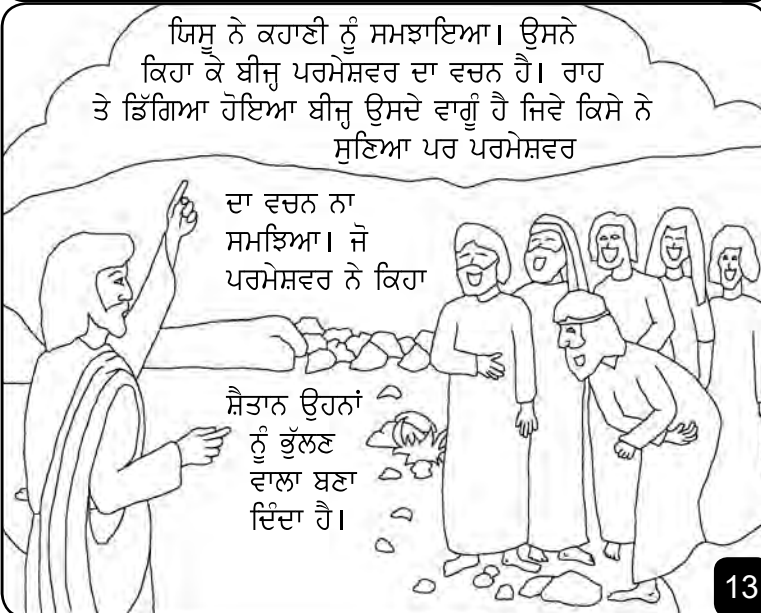 ਯਿਸੂ ਨੇ ਕਹਾਣੀ ਨੂੰ ਸਮਝਾਇਆ। ਉਸਨੇ
ਕਿਹਾ ਕੇ ਬੀਜ੍ਹ ਪਰਮੇਸ਼ਵਰ ਦਾ ਵਚਨ ਹੈ। ਰਾਹ
ਤੇ ਡਿੱਗਿਆ ਹੋਇਆ ਬੀਜ੍ਹ ਉਸਦੇ ਵਾਗੂੰ ਹੈ ਜਿਵੇ ਕਿਸੇ ਨੇ
ਸੁਣਿਆ ਪਰ ਪਰਮੇਸ਼ਵਰ
ਦਾ ਵਚਨ ਨਾ
ਸਮਝਿਆ। ਜੋ
ਪਰਮੇਸ਼ਵਰ ਨੇ ਕਿਹਾ
ਸ਼ੈਤਾਨ ਉਹਨਾਂ
ਨੂੰ ਭੁੱਲਣ
ਵਾਲਾ ਬਣਾ
ਦਿੰਦਾ ਹੈ।
13